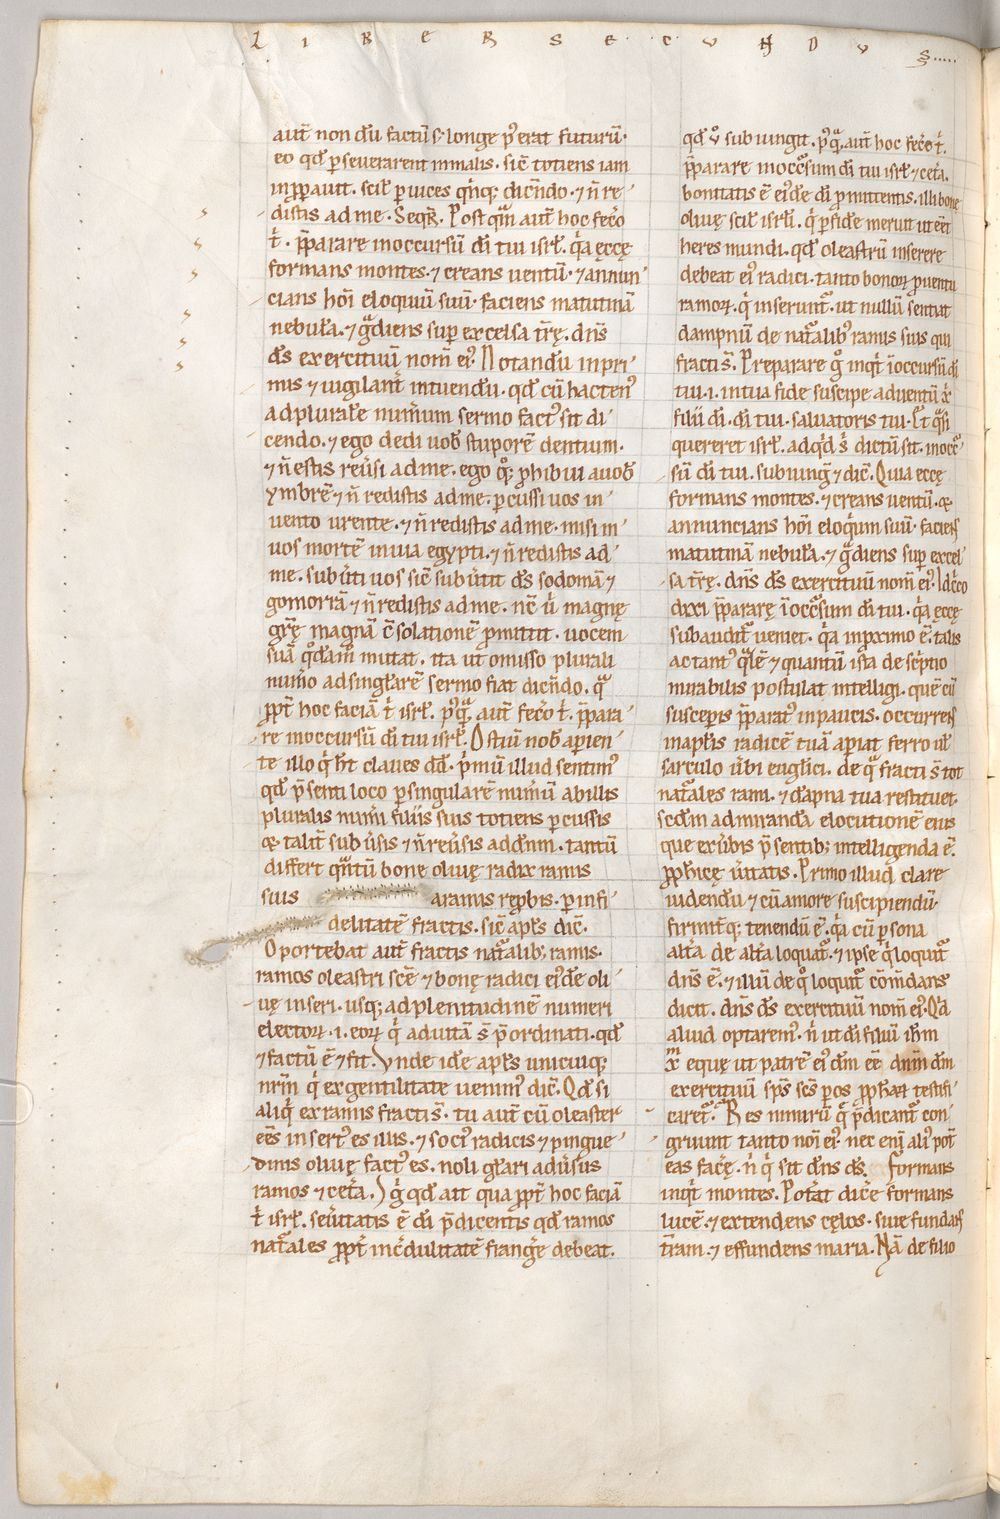 LIBER SECUNDUS
aut̄ non dū factū ſ· longe p̄erat futurū·
eo qd̄ pſeuerarent inmalis. sic̄ totiens iam
inp̄pauit. scil̄ p uices q̇nq; dicēdo · ⁊ n̄ re
distis adme · Seqr̄. Post qᵃm aut̄ hoc fec̄o
t̄. p̄parare inoccursū dī tui isrl̄. qᵃ ęccę
formans montes· ⁊ creans uentū· ⁊ annun
cians hōi eloquiū suū· faciens matutinā
nebulā. ⁊ gᵃdiens sup excelsa tr̄ę. dn̄s
ds̄ exercituū nom̄ ei᷒. Notandū inpri
mis ⁊ uigilant̄ intuendū. qd̄ cū hacten᷒
adplurale num̄um sermo fact᷒ sit di
cendo. ⁊ ego dedi uob̄ stuporē dentium.
⁊ n̄ estis reūsi adme. ego qͦ; phibui auob̄
ymbrē ⁊ n̄ redistis adme. pcussi uos in
uento urente. ⁊ n̄ redistis adme. misi in
uos mortē inuia egypti. ⁊ n̄ redistis ad
me. subūti uos sic̄ subūtit ds̄ sodomā ⁊
gomorrā ⁊ n̄ redistis adme. nc̄ ū magnę
gr̄ę magnā c̄solationē pmittit. uocem
suā qͦdam̄ mutat. ita ut omisso plurali
num̄o adsingl̄arē sermo fiat dicn̄do. qᵃ
ppt̄ hoc faciā t̄ isrl̄. p᷒qᵃ aut̄ fec̄o t̄. p̄para
re inoccursū dī tui isrl̄. Ostiū nob̄ apien
te illo q̇ ht̄ claues dd̄. p̄mū illud sentim᷒
qd̄ p̄senti loco psingularē num̄ū abillis
pluralis num̄i filiis suis totiens pcussis
⁊ talit̄ subūsis ⁊ n̄ reūsis addn̄m. tantū
differt qᵃntū bone oliuę radix ramis
suis aramis rep̄bis. pinfi
delitatē fractis. sic̄ apl̄s dic̄.
Oportebat aut̄ fractis natᵃlib; ramis.
ramos oleastri scē ⁊ bonę radici eid̄e oli
uę inseri. usq; adplenitudinē numeri
electoꝝ .i. eoꝝ q̇ aduitā s̄ p̄ordinati. qd̄
⁊ factū ē ⁊ fit. Vnde id̄e apl̄s unicuiq;
nr̄m q̇ exgentilitate uenim᷒ dic̄. Qd̄ si
aliq̇ exramis fracti s̄. tu aut̄ cū oleaster
eēs insert᷒ es illis. ⁊ soci᷒ radicis ⁊ pingue
dinis oliuę fact᷒ es. noli gl̄ari adūsus
ramos ⁊ cet̄a. Ig̊ qd̄ ait qua ppt̄ hoc faciā
t̄ isrl̄. seūitatis ē dī p̄dicentis qd̄ ramos
natᵃles ppt̄ inc̄dulitatē franḡe debeat.
qd̄ ū subiungit. p᷒qᵃ aut̄ hoc fec̄o t̄.
p̄parare inoccᵘsum dī tui isrl̄ ⁊ cet̄a.
bonitatis ē eid̄e dī pmittentis. illi bone
oliuę scil̄ isrl̄i. q̇ pfidē meruit ut eēt
heres mundi. qd̄ oleastrū inserere
debeat ei᷒ radici. tanto bonoꝝ puentu
ramoꝝ. q̇ inserunt᷑. ut nullū sentiat
dampnū de natᵃlib᷒ ramis suis qui
fracti s̄. Preparare gͦ inqt̄ īoccursū dī
tui .i. intua fide suscipe aduentū x̄
filii dī. dī tui. saluatoris tui. Et qᵃsi
quereret isrl̄. adqd̄ s̄ dictū sit. inoccᵘ
sū dī tui. subiung̅ ⁊ dic̄. Quia ecce
formans montes. ⁊ creans uentū. ⁊
annuncians hōi eloq̇um suū. faciens
matutinā nebulā. ⁊ gᵃdiens sup excel
sa tr̄ę. dn̄s ds̄ exercituū nom̄ ei᷒. Idc̄co
dixi p̄pararę īoccᵘsum dī tui. qᵃ ęccę
subaudit᷑ ueniet. qᵃ inpximo ē. talis
ac tant᷒ qᵃlē ⁊ quantū ista descⁱptio
mirabilis postulat intelligi. quē cū
susceperis p̄parat᷒ inpaucis. occurrens
inapl̄is radicē tuā apiat ferro ul̄
sarculo ūbi eugl̄ici. de qᵃ fracti s̄ tot
natᵃles rami. ⁊ d̄apna tua restituet.
scd̄m admirandā elocutionē eius
que exūbis p̄sentib; intelligenda ē.
pp̄hicę ūitatis. Primo illud clare
uidendū ⁊ cū amore suscipiendū·
firmit̄q; tenendū ē. qᵃ cū psona
alt̄a de alt̄a loquat᷑. ⁊ ipse q̇ loquit᷑
dn̄s ē. ⁊ illū de qͦ loquit᷑ cōm̄dans
dicit. dn̄s ds̄ exercituū nom̄ ei᷒. Qd̄
aliud optarem᷒. n̄ ut dī filiū ihm̄
xm̄ eque ut patrē ei᷒ dm̄ eē dnm̄ dm̄
exercituū sps̄ scs̄ pos pp̄haꝝ testifi
caret᷑. Res nimirū q̇ p̄dicant᷑ con
gruunt tanto nōi ei᷒. nec enī ali᷒ pot̄
eas fac̄e. n̄ q̇ sit dn̄s ds̄. formans
inqt̄ montes. Pot̄at dic̄e formans
lucē. ⁊ extendens cęlos. siue fundans
tr̄am. ⁊ effundens maria. Nā de filio